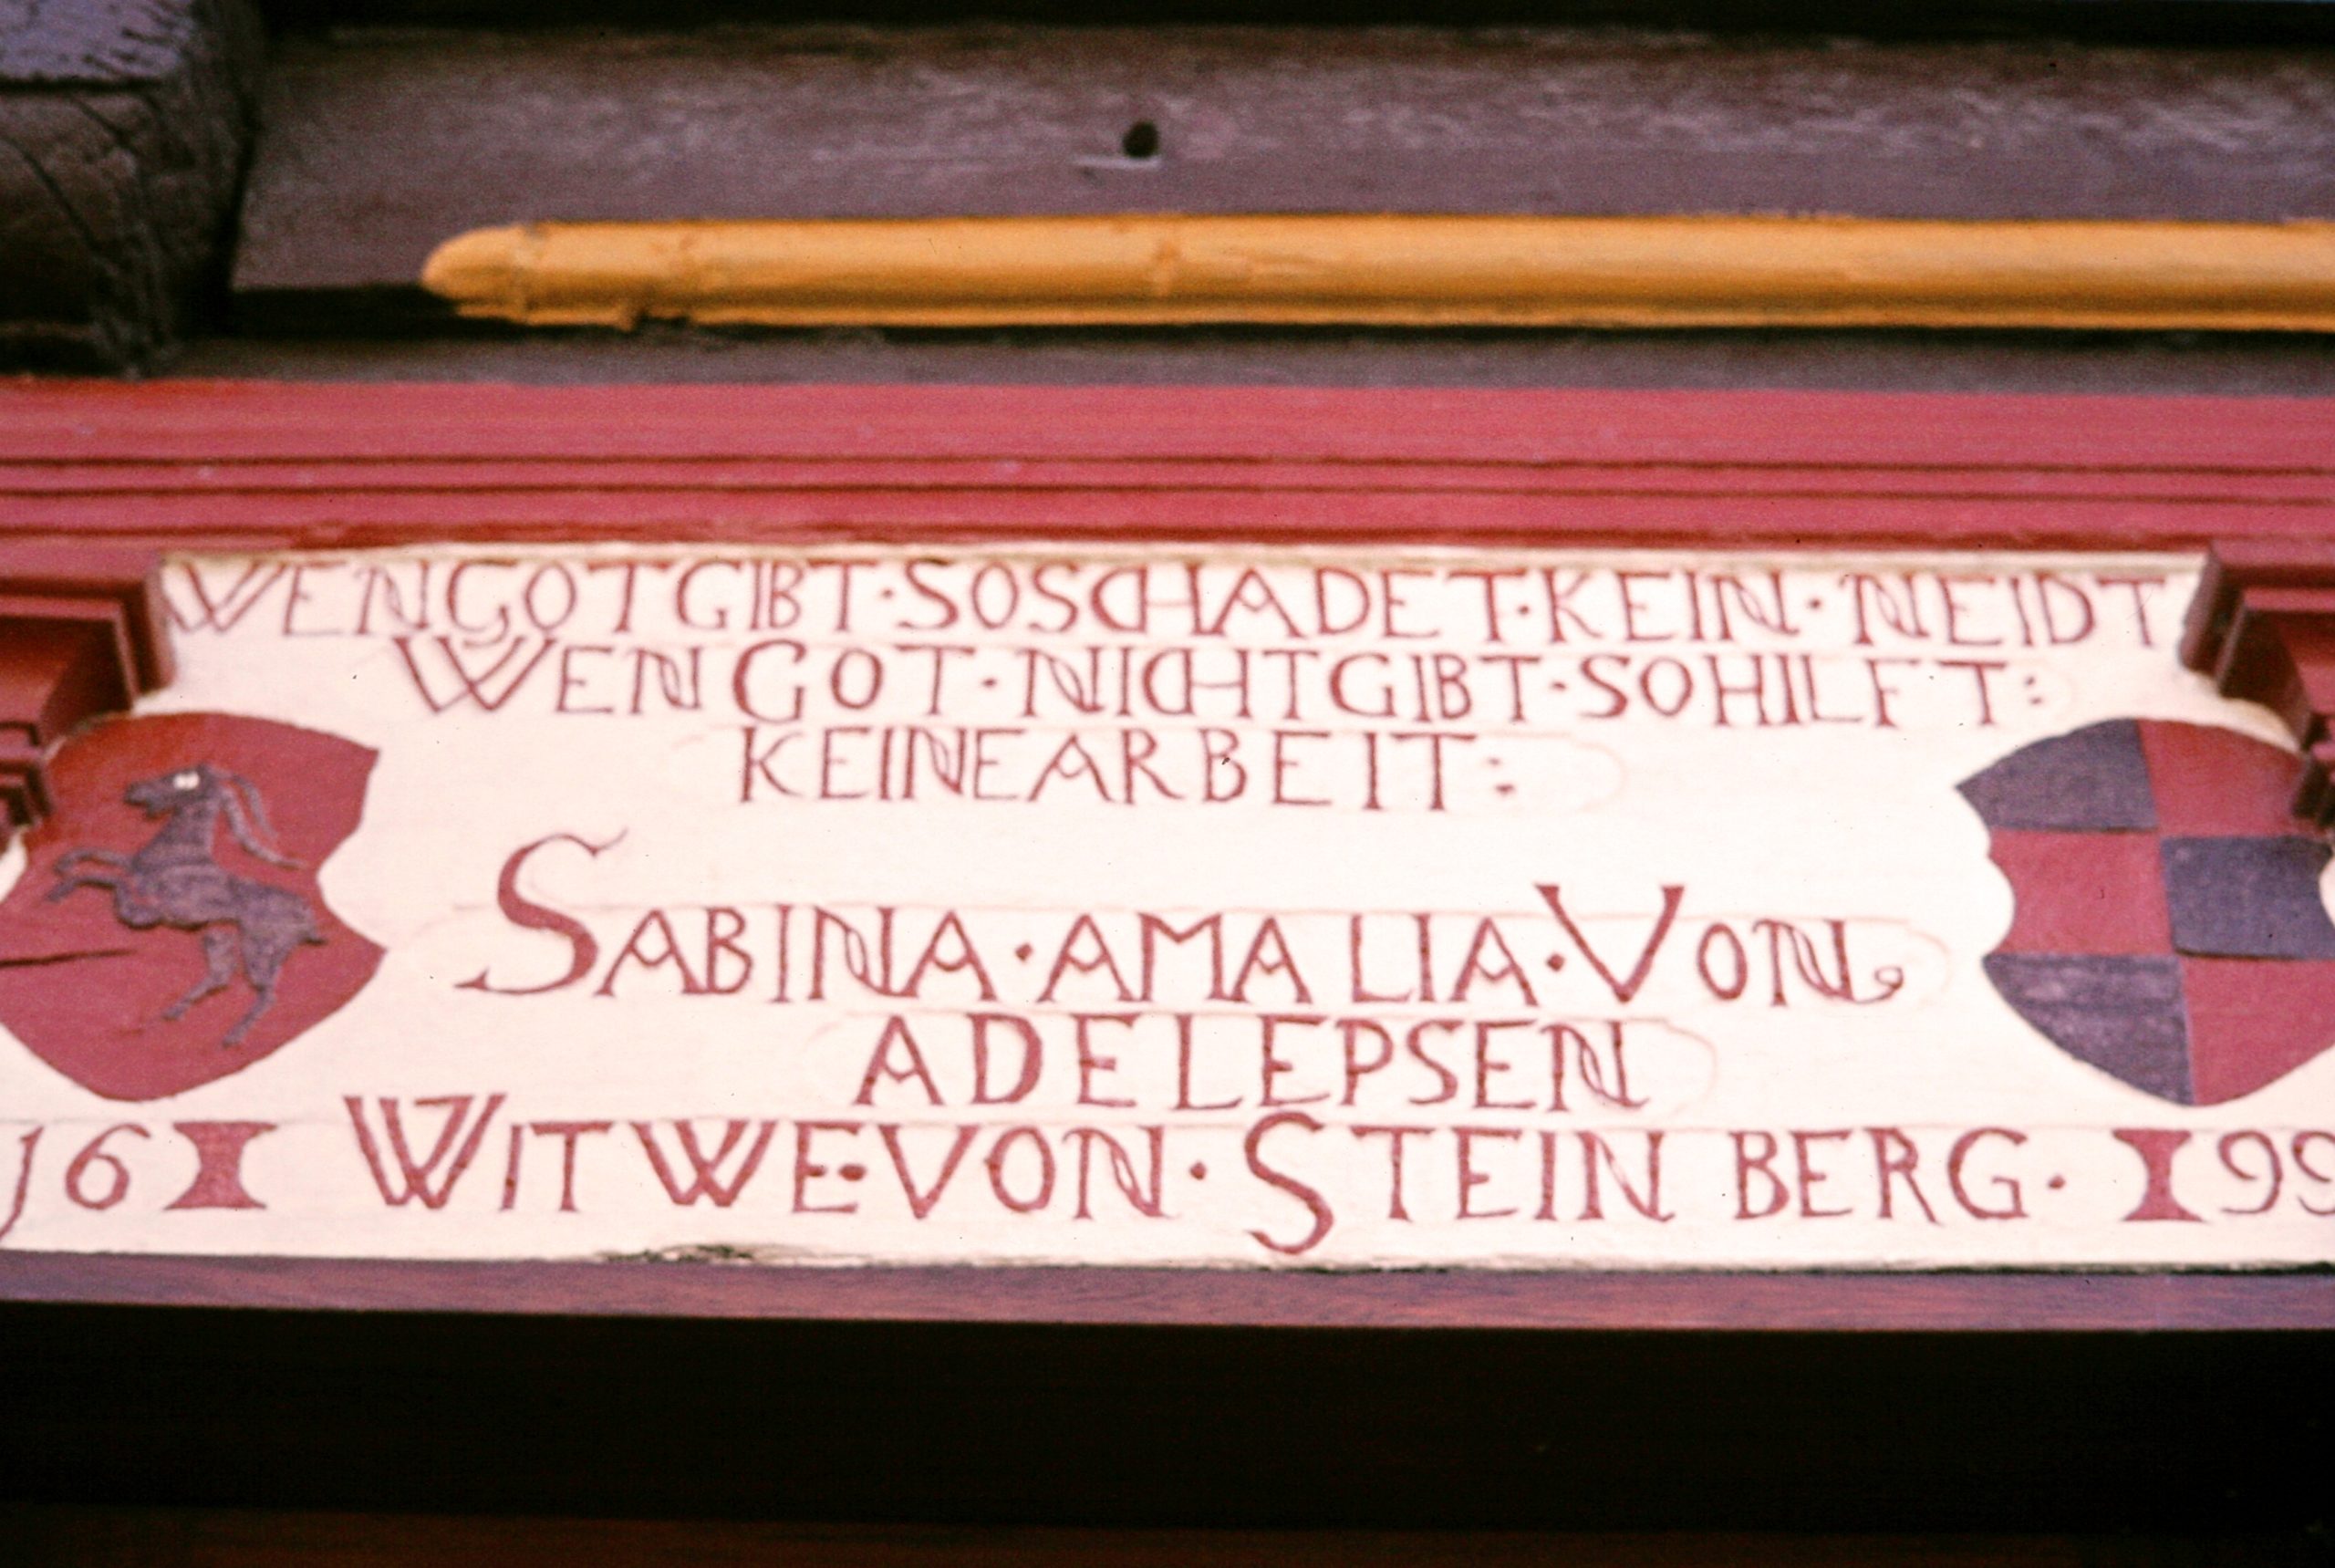 WENGOTGIBT·SOSCHADET·KEIN·NEIDT
WENGOT·NICHTGIBT·SOHILFT:
KEINEARBEIT:
SABINA·AMALIA·VON
ADELEPSEN
161 WITWE·VON·STEINBERG· 199